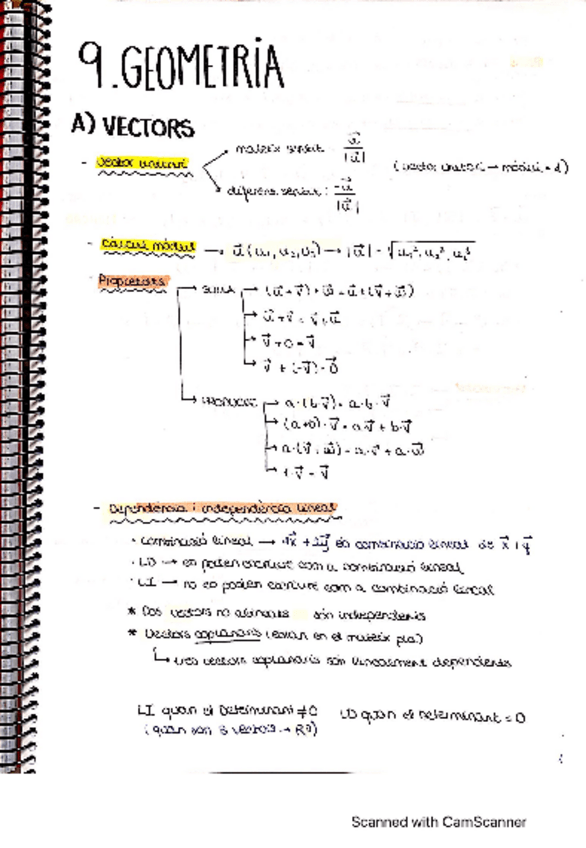 9. GEOMETRIA
A) VECTORS
- Vector unitari
mateix sentit : u⃗ / |u⃗|
diferent sentit : -u⃗ / |u⃗|
(vector unitari → mòdul = 1)
- Càlcul mòdul → u⃗ (u₁, u₂, u₃) → |u⃗| =
- Propietats
SUMA → (u⃗ + v⃗) + w⃗ = u⃗ + (v⃗ + w⃗)
→ u⃗ + v⃗ = v⃗ + u⃗
→ v⃗ + 0 = v⃗
→ v⃗ + (-v⃗) = 0⃗
PRODUCTE → a · (b · v⃗) = a · b · v⃗
→ (a+b) · v⃗ = a · v⃗ + b · v⃗
→ a · (v⃗ + w⃗) = a · v⃗ + a · w⃗
→ 1 · v⃗ = v⃗
- Dependència i independència lineal
· combinació lineal → és combinació lineal de x⃗ i y⃗
· LD → es poden escriure com a combinació lineal
· LI → no es poden escriure com a combinació lineal
* Dos vectors no alineats són independents
* Vectors coplanaris (estan en el mateix pla)
↳ tres vectors coplanaris són linealment dependents
LI quan el Determinant ≠ 0 LD quan el Determinant = 0
(quan són 3 vectors → R³)
Scanned with CamScanner